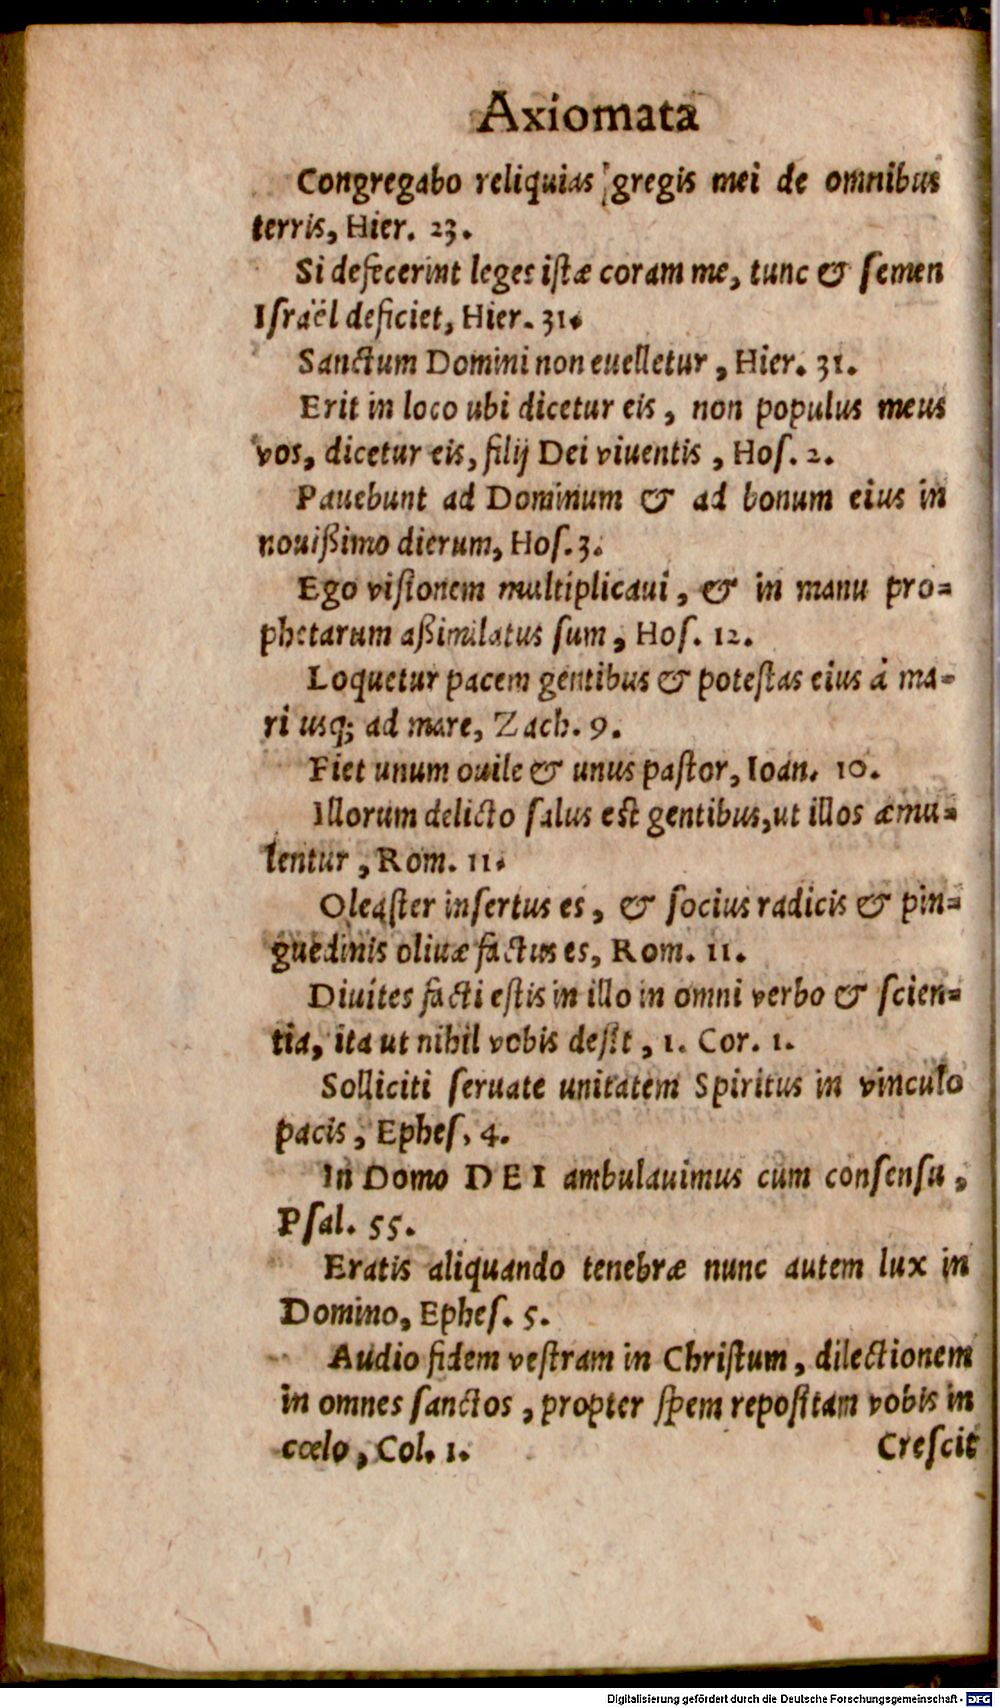 Axiomata
Congregabo reliquias gregis mei de omnibus
terris, Hier. 23.
Si defecerint leges istæ coram me, tunc & semen
Israël deficiet, Hier. 31.
Sanctum Domini non euelletur, Hier. 31.
Erit in loco ubi dicetur eis, non populus meus
vos, dicetur eis, filij Dei viuentis, Hos. 2.
Pauebunt ad Dominum & ad bonum eius in
nouißimo dierum, Hos. 3.
Ego visionem multiplicaui, & in manu pro-
phetarum aßimilatus sum, Hos. 12.
Loquetur pacem gentibus & potestas eius à ma-
ri usq; ad mare, Zach. 9.
Fiet unum ouile & unus pastor, Ioan. 10.
Illorum delicto salus est gentibus, ut illos æmu-
lentur, Rom. 11.
Oleaster insertus es, & socius radicis & pin-
guedinis oliuæ factus es, Rom. 11.
Diuites facti estis in illo in omni verbo & scien-
tia, ita ut nihil vobis desit, 1. Cor. 1.
Solliciti seruate unitatem Spiritus in vinculo
pacis, Ephes. 4.
In Domo DEI ambulauimus cum consensu,
Psal. 55.
Eratis aliquando tenebræ nunc autem lux in
Domino, Ephes. 5.
Audio fidem vestram in Christum, dilectionem
in omnes sanctos, propter spem repositam vobis in
cœlo, Col. 1.
Crescit
Digitalisierung gefördert durch die Deutsche Forschungsgemeinschaft - DFG